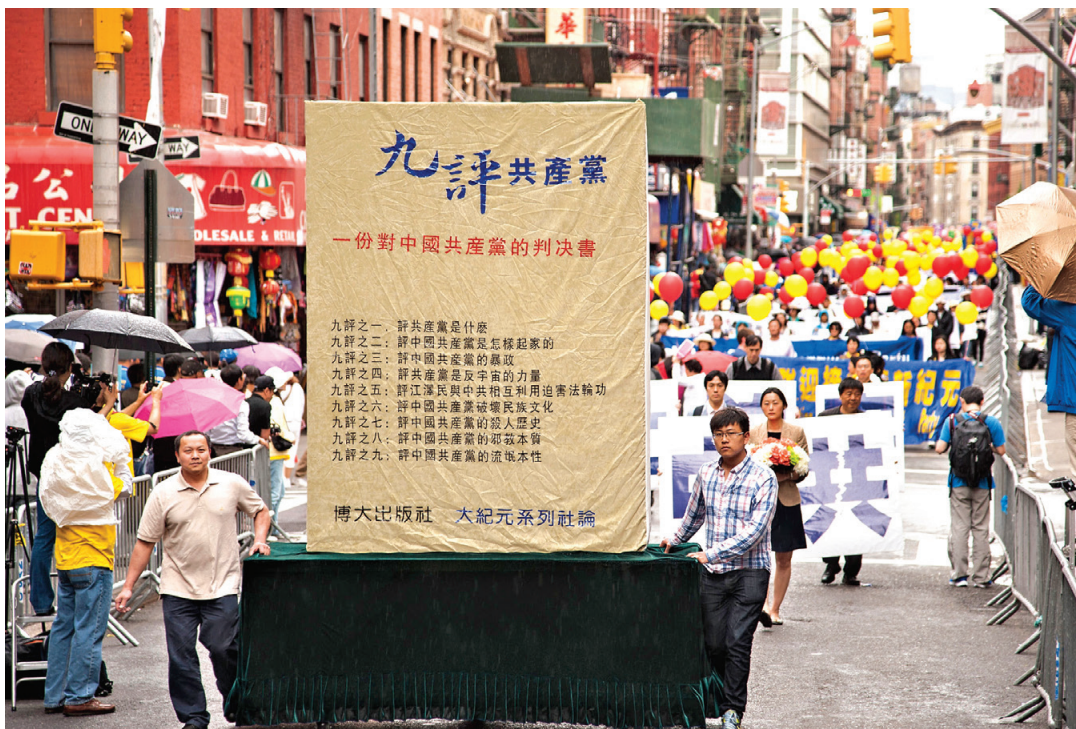 華
ONE WAY
WAY
名公
T CEN
OLESALE & RETAIL
九評共産黨
一份對中國共産黨的判决書
九評之一：評共産黨是什麽
九評之二：評中國共産黨是怎樣起家的
九評之三：評中國共産黨的暴政
九評之四：評共産黨是反宇宙的力量
九評之五：評江澤民與中共相互利用迫害法輪功
九評之六：評中國共産黨破壞民族文化
九評之七：評中國共産黨的殺人歷史
九評之八：評中國共産黨的邪教本質
九評之九：評中國共産黨的流氓本性
博大出版社 大紀元系列社論
紀元
共